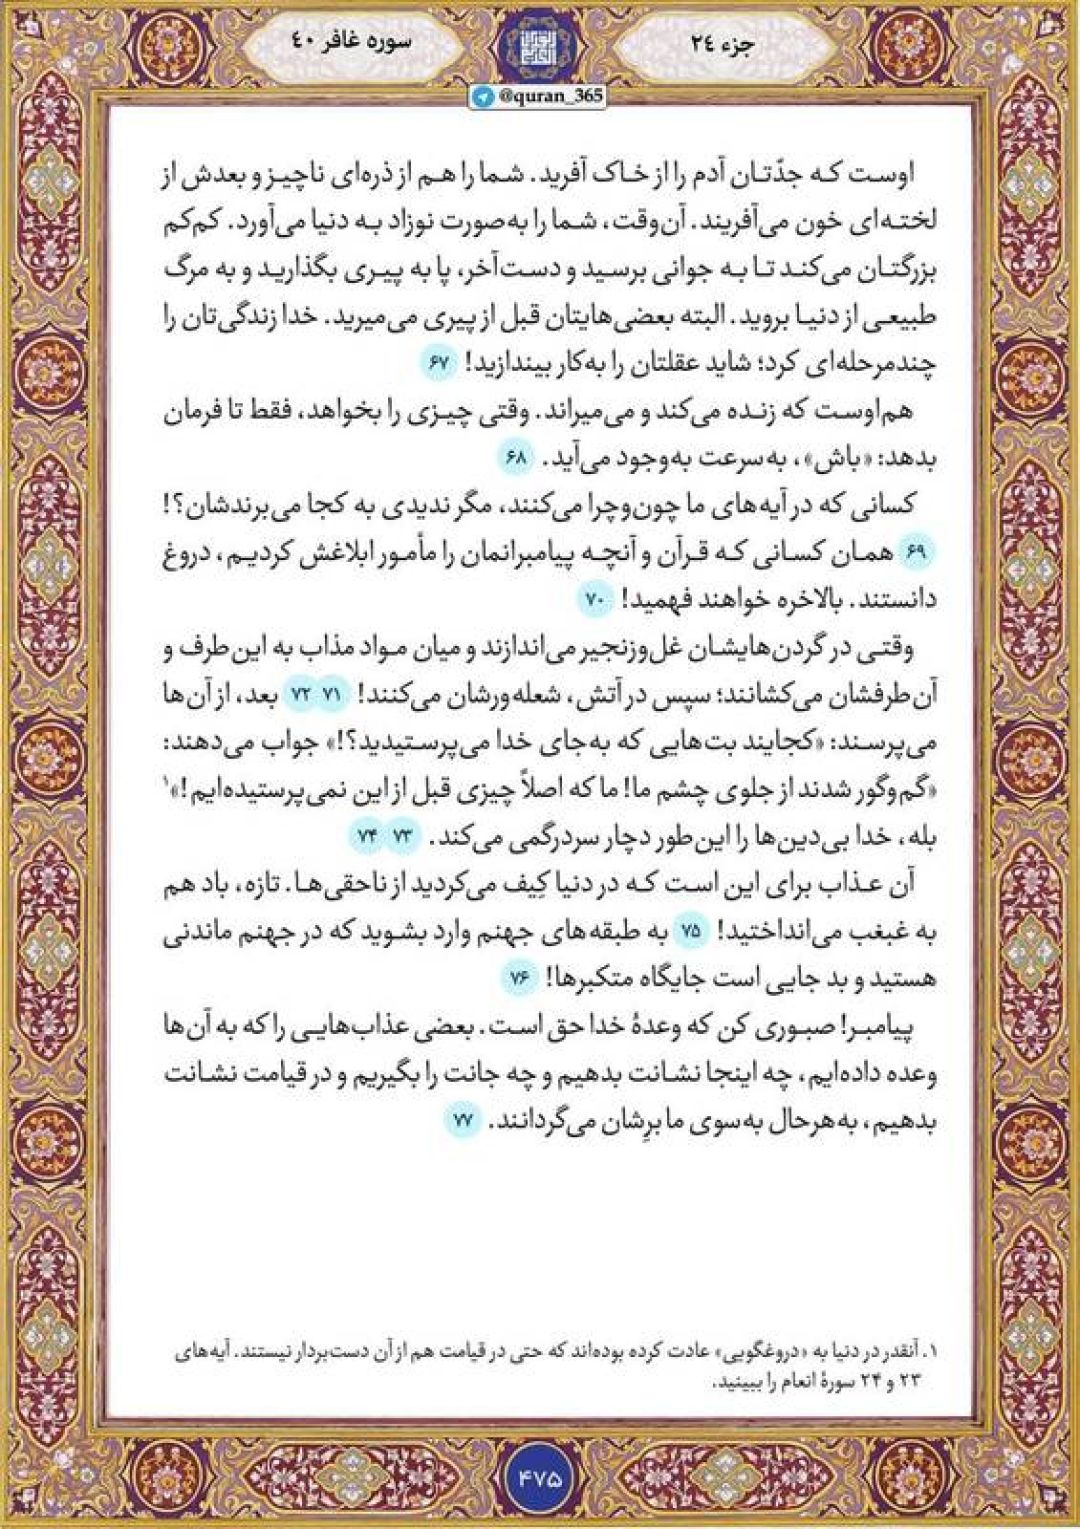 جزء ۲۴
سوره غافر ۴۰
@quran_365
اوست که جدّتان آدم را از خاک آفرید. شما را هم از ذره‌ای ناچیز و بعدش از
لخته‌ای خون می‌آفریند. آن‌وقت، شما را به‌صورت نوزاد به دنیا می‌آورد. کم‌کم
بزرگتان می‌کند تا به جوانی برسید و دست‌آخر، پا به پیری بگذارید و به مرگ
طبیعی از دنیا بروید. البته بعضی‌هایتان قبل از پیری می‌میرید. خدا زندگی‌تان را
چندمرحله‌ای کرد؛ شاید عقلتان را به‌کار بیندازید! ۶۷
هم‌اوست که زنده می‌کند و می‌میراند. وقتی چیزی را بخواهد، فقط تا فرمان
بدهد: «باش»، به‌سرعت به‌وجود می‌آید. ۶۸
کسانی که در آیه‌های ما چون‌وچرا می‌کنند، مگر ندیدی به کجا می‌برندشان؟!
۶۹ همان کسانی که قرآن و آنچه پیامبرانمان را مأمور ابلاغش کردیم، دروغ
دانستند. بالاخره خواهند فهمید! ۷۰
وقتی در گردن‌هایشان غل‌وزنجیر می‌اندازند و میان مواد مذاب به این‌طرف و
آن‌طرفشان می‌کشانند؛ سپس در آتش، شعله‌ورشان می‌کنند! ۷۱ ۷۲ بعد، از آن‌ها
می‌پرسند: «کجایند بت‌هایی که به‌جای خدا می‌پرستیدید؟!» جواب می‌دهند:
«گم‌وگور شدند از جلوی چشم ما! ما که اصلاً چیزی قبل از این نمی‌پرستیده‌ایم!»۱
بله، خدا بی‌دین‌ها را این‌طور دچار سردرگمی می‌کند. ۷۳ ۷۴
آن عذاب برای این است که در دنیا کِیف می‌کردید از ناحقی‌ها. تازه، باد هم
به غبغب می‌انداختید! ۷۵ به طبقه‌های جهنم وارد بشوید که در جهنم ماندنی
هستید و بد جایی است جایگاه متکبرها! ۷۶
پیامبر! صبوری کن که وعدهٔ خدا حق است. بعضی عذاب‌هایی را که به آن‌ها
وعده داده‌ایم، چه اینجا نشانت بدهیم و چه جانت را بگیریم و در قیامت نشانت
بدهیم، به‌هرحال به‌سوی ما برِشان می‌گردانند. ۷۷
۱. آنقدر در دنیا به «دروغگویی» عادت کرده بوده‌اند که حتی در قیامت هم از آن دست‌بردار نیستند. آیه‌های
۲۳ و ۲۴ سورهٔ انعام را ببینید.
۴۷۵